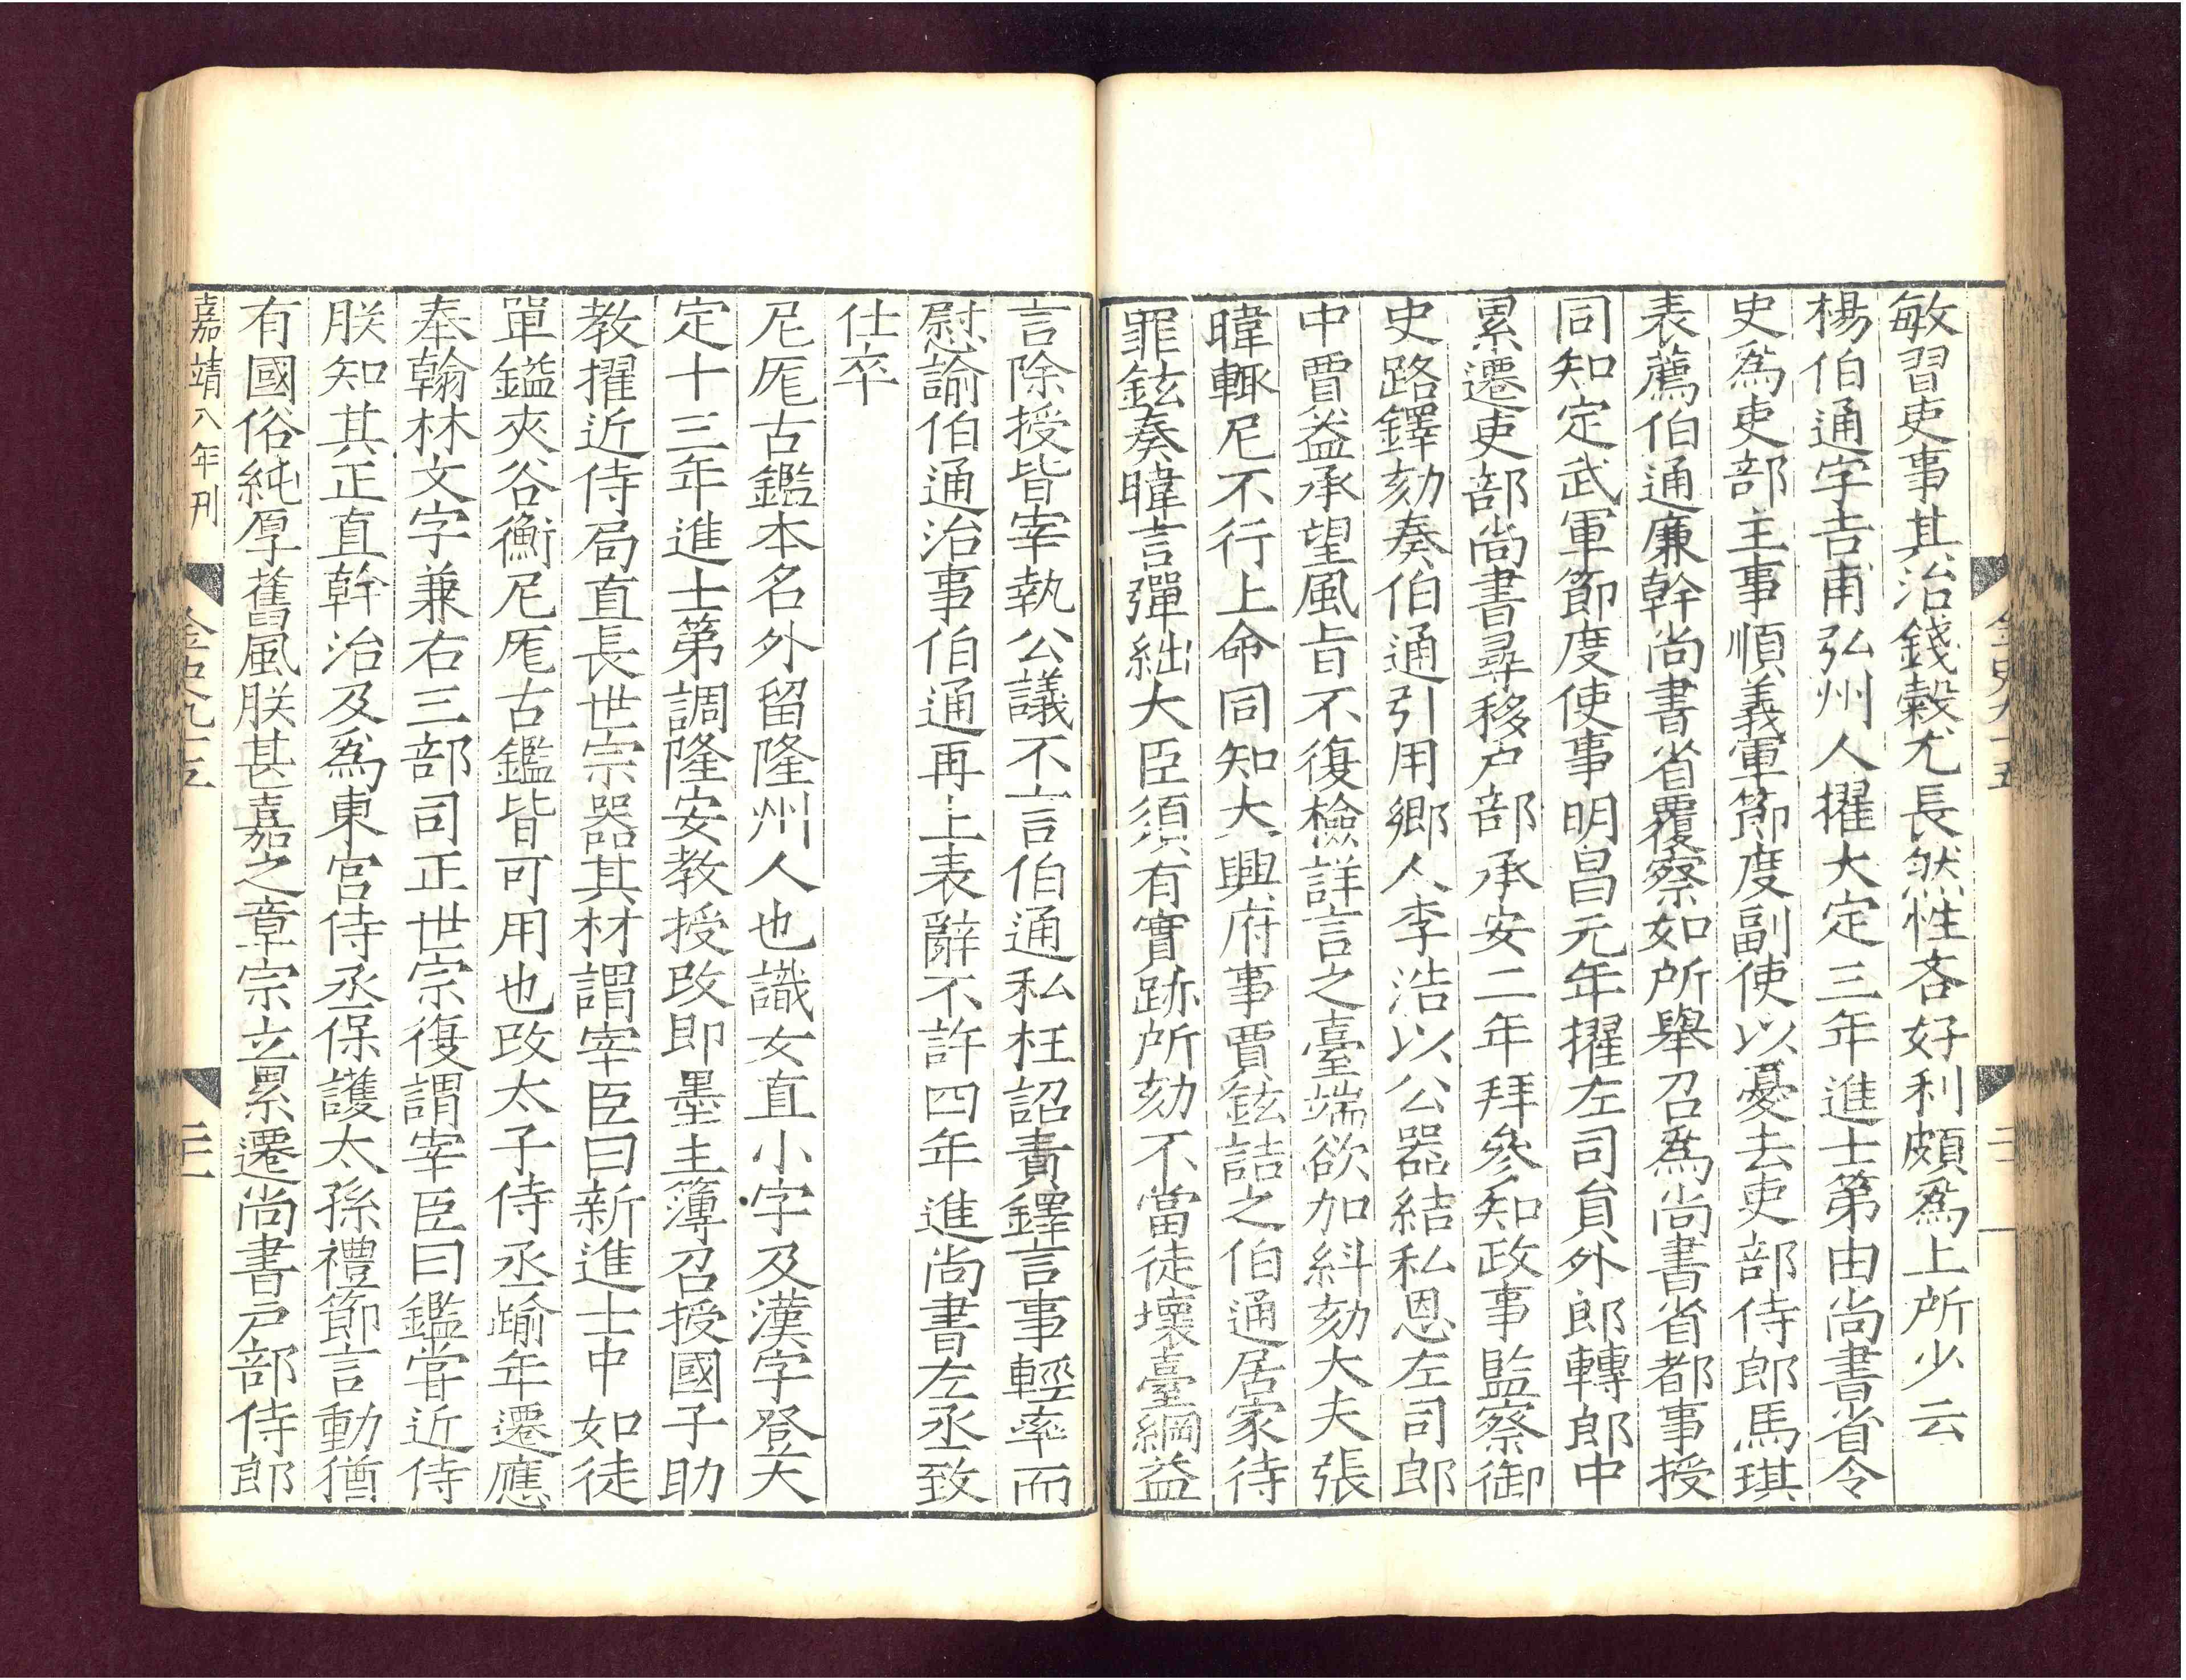 金史九十五
二十
敏習吏事其治錢穀尤長然性吝好利頗爲上所少云
楊伯通字吉甫弘州人擢大定三年進士第由尚書省令
史爲吏部主事順義軍節度副使以憂去吏部侍郎馬琪
表薦伯通廉幹尚書省覆察如所舉召爲尚書省都事授
同知定武軍節度使事明昌元年擢左司員外郎轉郎中
累遷吏部尚書尋移户部承安二年拜參知政事監察御
史路鐸劾奏伯通引用鄉人李浩以公器結私恩左司郎
中賈益承望風旨不復檢詳言之臺端欲加糾劾大夫張
暐輒尼不行上命同知大興府事賈鉉詰之伯通居家待
罪鉉奏暐言彈絀大臣須有實跡所劾不當徒壞臺綱益
言除授皆宰執公議不言伯通私枉詔責鐸言事輕率而
慰諭伯通治事伯通再上表辭不許四年進尚書左丞致
仕卒
尼厖古鑑本名外留隆州人也識女直小字及漢字登大
定十三年進士第調隆安教授改即墨主簿召授國子助
教擢近侍局直長世宗器其材謂宰臣曰新進士中如徒
單鎰夾谷衡尼厖古鑑皆可用也改太子侍丞踰年遷應
奉翰林文字兼右三部司正世宗復謂宰臣曰鑑甞近侍
朕知其正直幹治及爲東宮侍丞保護太孫禮節言動猶
有國俗純厚舊風朕甚嘉之章宗立累遷尚書户部侍郎
嘉靖八年刊